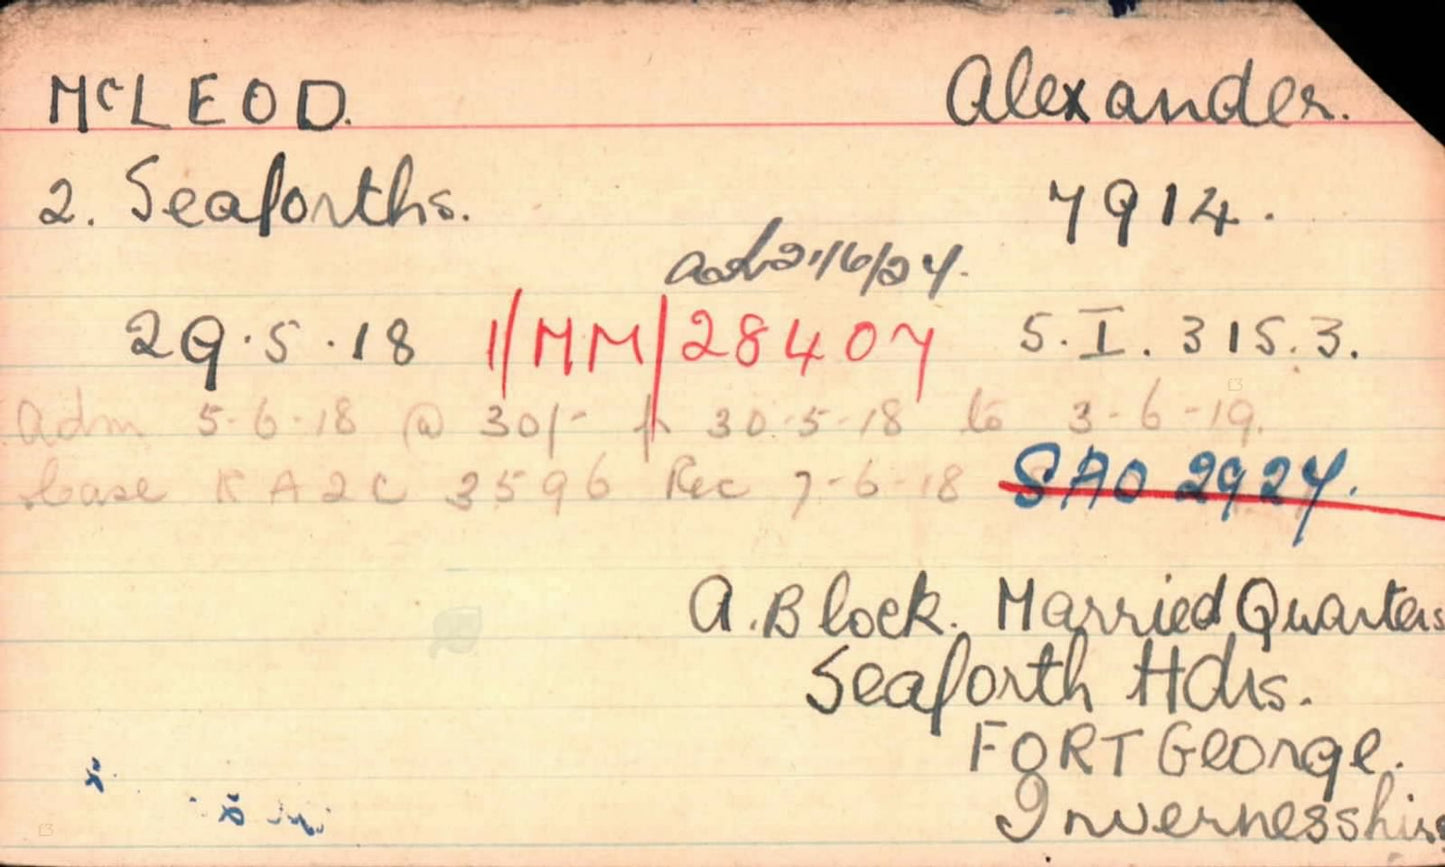 McLEOD. Alexander.
2. Seaforths. 7914.
21/6/24.
29.5.18 11/MM/28407 5.I.315.3.
Adm 5-6-18 @ 30/- fr 30-5-18 to 3-6-19.
Case RA2C 3596 Rec 7-6-18 SAO 2924.
A.Block. Married Quarters
Seaforth Hdrs.
FORT George.
Invernesshire